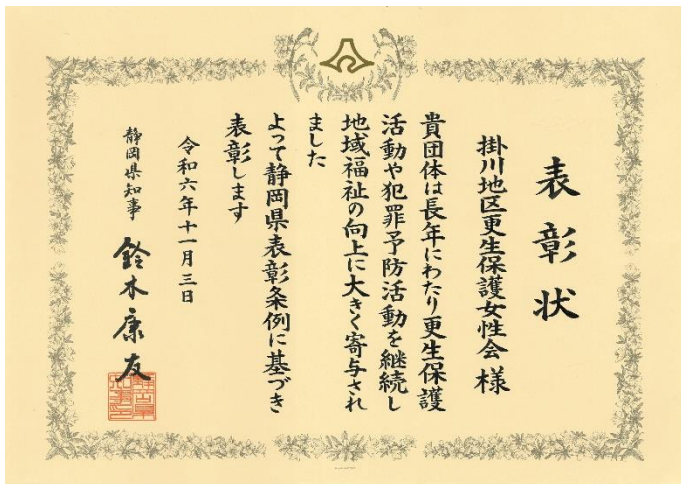 表彰状
掛川地区更生保護女性会 様
貴団体は長年にわたり更生保護
活動や犯罪予防活動を継続し
地域福祉の向上に大きく寄与され
ました
よって静岡県表彰条例に基づき
表彰します
令和六年十一月三日
静岡県知事 鈴木康友